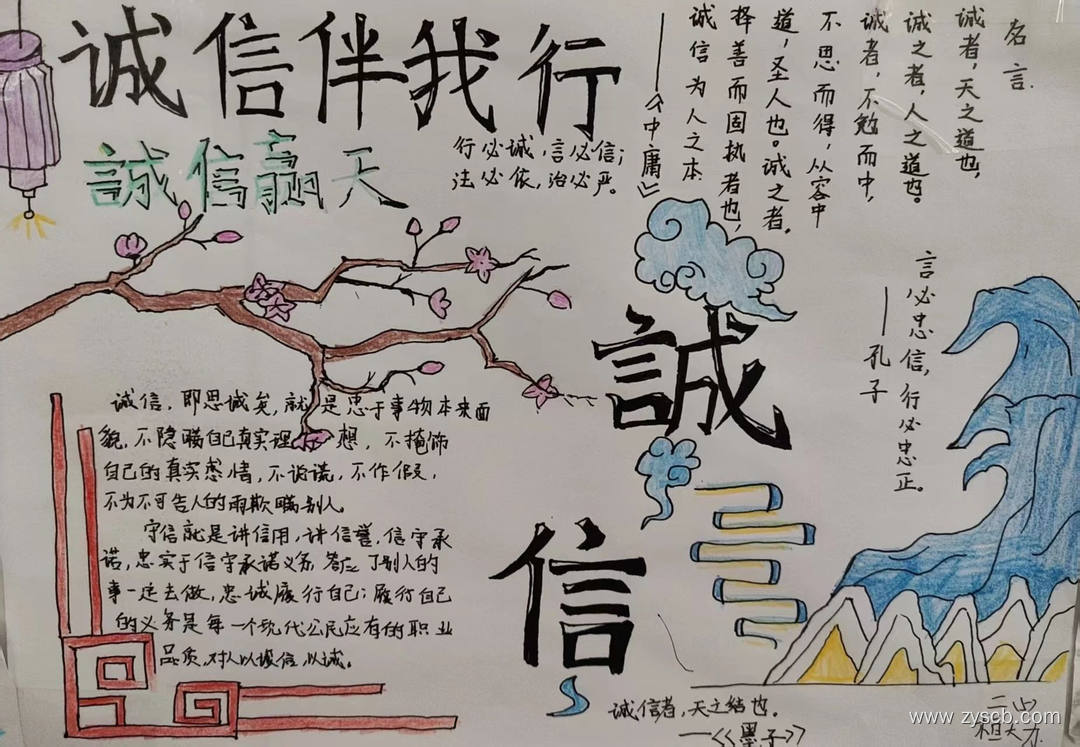 诚信伴我行
誠信赢天
行必诚，言必信；
法必依，治必严。
名言
诚者，天之道也，
诚之者，人之道也。
诚者，不勉而中，
不思而得，从容中
道，圣人也。诚之者，
择善而固执者也，
诚信为人之本
——《中庸》
言必忠信，行必忠正。
——孔子
誠
信
诚信，即思诚矣，就是忠于事物本来面
貌，不隐瞒自己真实理想，不掩饰
自己的真实感情，不说谎，不作假，
不为不可告人的而欺瞒别人。
守信就是讲信用，讲信誉，信守承
诺，忠实于信守承诺义务，答应了别人的
事一定去做，忠诚履行自己；履行自己
的义务是每一个现代公民应有的职业
品质，对人以诚信，以诚。
诚信者，天之结也。
—<<墨子>>
www.zyscb.com